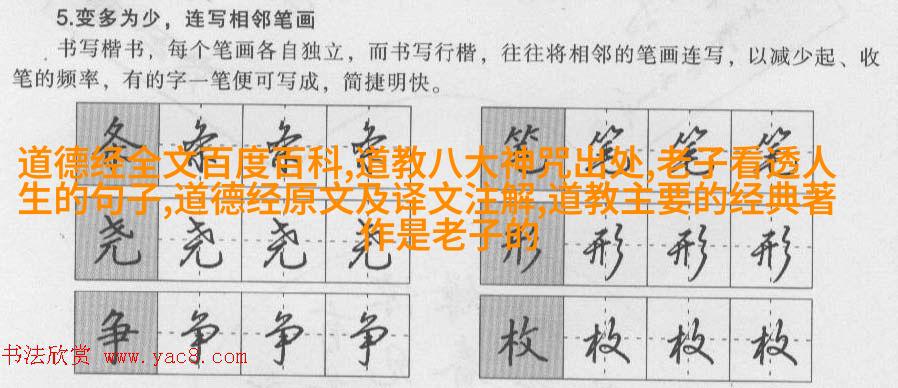 5.变多为少，连写相邻笔画
书写楷书，每个笔画各自独立，而书写行楷，往往将相邻的笔画连写，以减少起、收
笔的频率，有的字一笔便可写成，简捷明快。
条 条 条 条 笔 笔 笔 笔
道德经全文百度百科,道教八大神咒出处,老子看透人
生的句子,道德经原文及译文注解,道教主要的经典著
作是老子的
尧 尧 尧 尧 形 形 形 形
争 争 争 争 枚 枚 枚 枚
书法欣赏 www.yac8.com